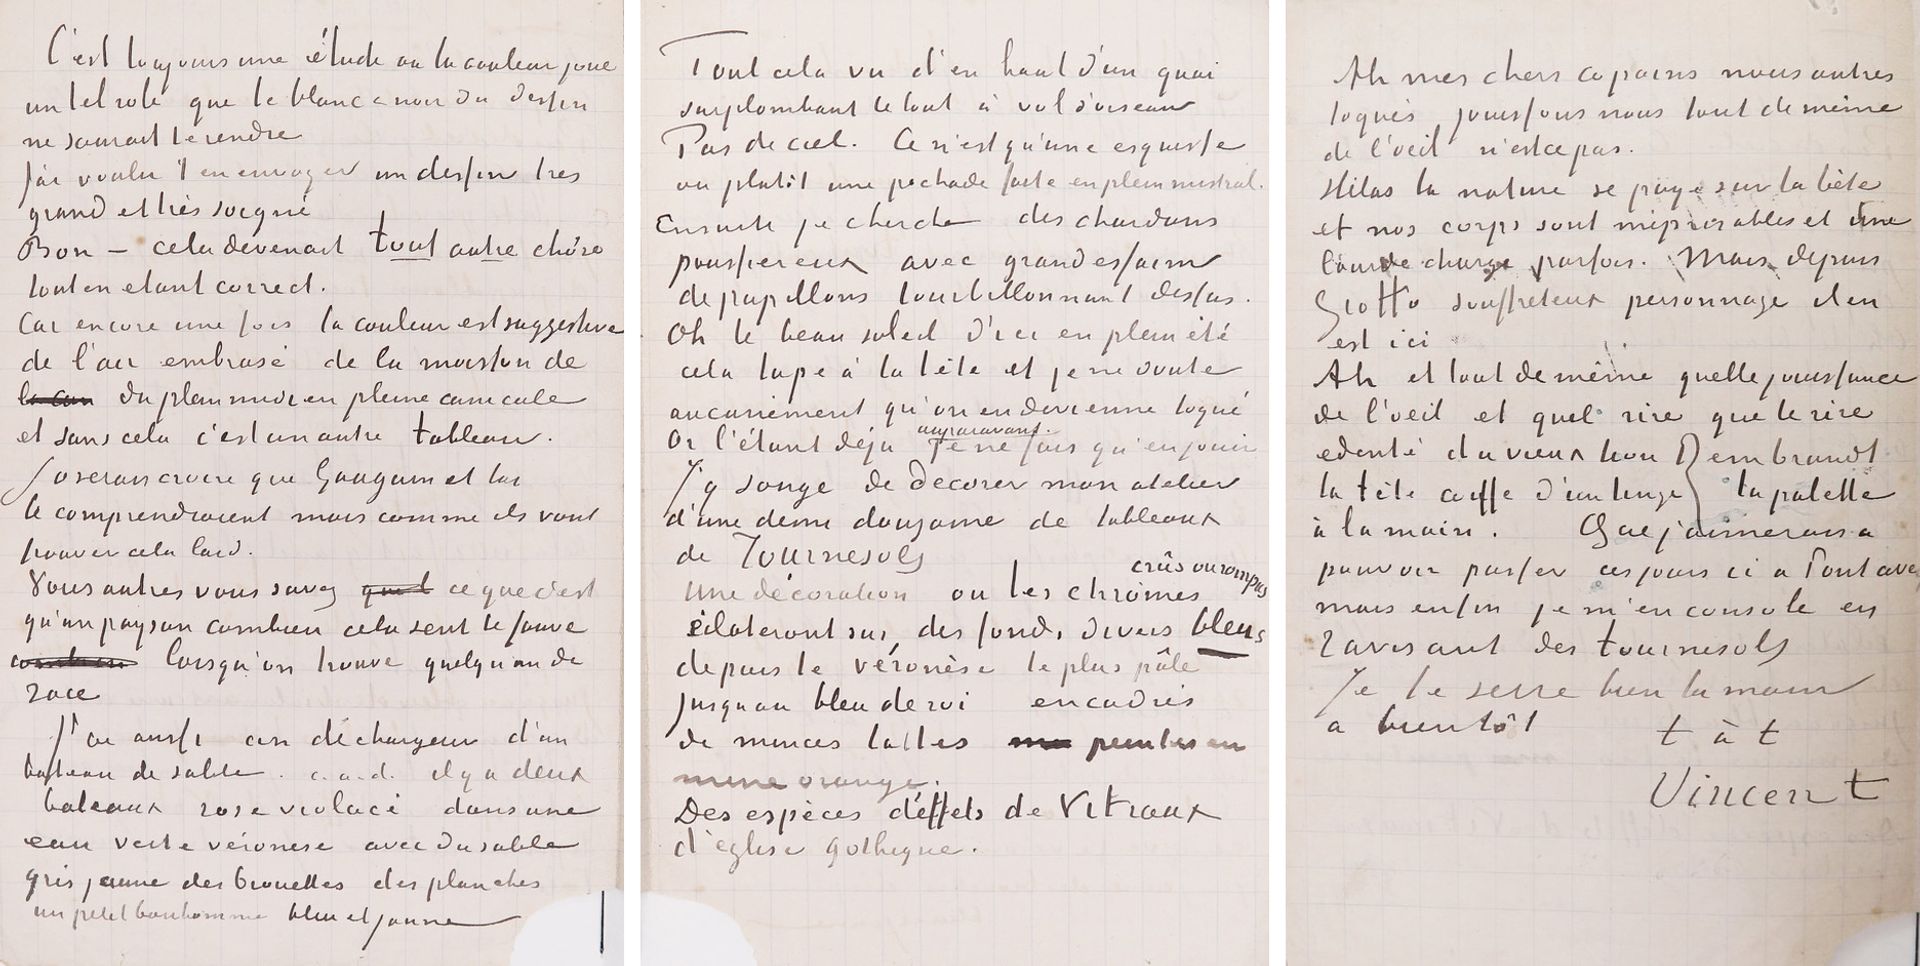 C'est toujours une étude ou la couleur joue
un tel role que le blanc & noir du dessin
ne saurait le rendre
J'ai voulu t'en envoyer un dessin tres
grand et très soigné
Bon – cela devenait tout autre chôse
tout en etant correct.
Car encore une fois la couleur est suggestive
de l'air embrasé de la moisson de
du plein midi en pleine canicule
et sans cela c'est un autre tableau.
J'oserais croire que Gauguin et toi
le comprendraient mais comme ils vont
trouver cela laid.
Vous autres vous savez ce que c'est
qu'un paysan combien cela sent le fauve
lorsqu'on trouve quelqu'un de
race
J'ai aussi un déchargeur d'un
bateau de sable. c.a.d. il y a deux
bateaux rose violacé dans une
eau verte véronèse avec du sable
gris jaune des brouettes des planches
un petit bonhomme bleu et jaune
Tout cela vu d'en haut d'un quai
surplombant le tout à vol d'oiseau
Pas de ciel. Ce n'est qu'une esquisse
ou plutôt une pochade faite en plein mistral.
Ensuite je cherche des chardons
poussiereux avec grand essaim
de papillons tourbillonnant dessus.
Oh le beau soleil d'ici en plein été
cela tape à la tête et je ne doute
aucunément qu'on en devienne toqué
Or l'étant déjà auparavant. Je ne fais qu'en jouir
J'y songe de décorer mon atelier
d'une demi douzaine de tableaux
de Tournesols
Une décoration ou les chrômes crûs ou rompus
éclateront sur des fonds divers bleus
depuis le véronèse le plus pâle
jusqu'au bleu de roi encadrés
de minces lattes peintes en
mine orange.
Des espèces d'effets de Vitraux
d'église gothique.
Ah mes chers copains nous autres
toqués jouissons nous tout de même
de l'oeil n'est ce pas.
Hélas la nature se paye sur la bête
et nos corps sont méprisables et une
lourde charge parfois. Mais depuis
Giotto souffreteux personnage il en
est ici
Ah et tout de même quelle jouissance
de l'oeil et quel rire que le rire
edenté du vieux lion Rembrandt
la tête coiffe d'un linge la palette
à la main. Que j'aimerais a
pouvoir passer ces jours ci a Pont aven
mais enfin je m'en console en
ravisant des tournesols
Je te serre bien la main
a bientôt t à t
Vincent